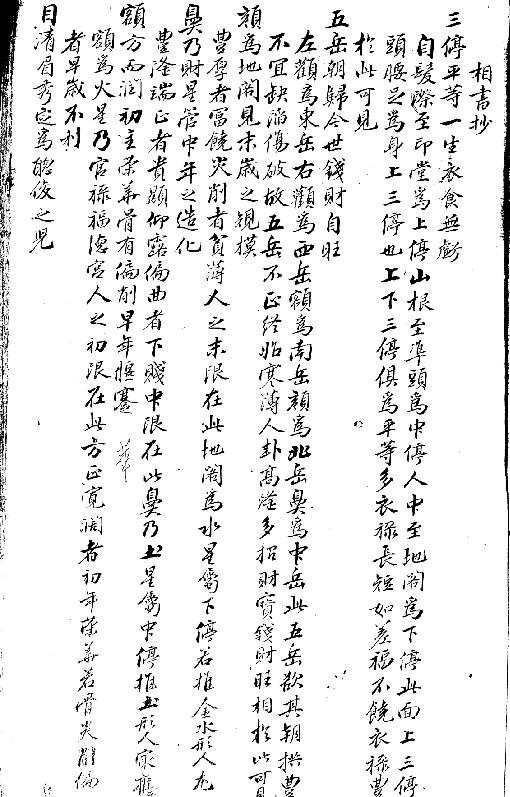 相書抄
三停平等一生衣食無虧
自髮際至印堂為上停山根至準頭為中停人中至地閣為下停此面上三停
頭腰足為身上三停也上下三停俱為平等多衣祿長短如差福不饒衣祿豊
於此可見
五岳朝歸今世錢財自旺
左顴為東岳右顴為西岳額為南岳頦為北岳鼻為中岳此五岳欲其朝拱豊
不宜缺陷傷破故五岳不正終始寒薄人卦高聳多招財寶錢財旺相於此可見
頦為地閣見末歲之規模
豊厚者富饒尖削者貧薄人之末限在此地閣為水星屬下停若推金水形人尤
鼻乃財星管中年之造化
豊隆端正者貴顯仰露偏曲者下賤中限在此鼻乃土星屬中停推土形人家應
額方而闊初主榮華骨有偏削早年偃蹇
額為火星乃官祿福德宮人之初限在此方正寬闊者初年榮華若骨尖削偏
者早歲不利
目清眉秀定為聰俊之児